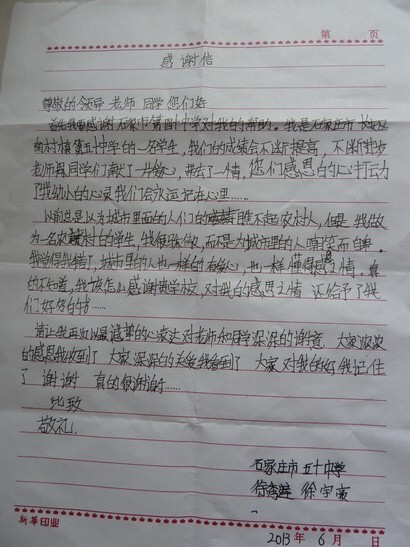 第 页
感谢信
尊敬的领导 老师 同学 您们好
首先我要感谢石家庄市第四十中学对我的帮助。我是石家庄市长安区
南村镇第五十中学的一名学生，我们的成绩会不断提高，不断进步
老师跟同学们献了一片爱心，带去了一个情，您们感恩的心打动
了我幼小的心灵我们会永远记在心里……
以前总是以为城市里面的人们的 瞧不起农村人，但是 我做
为一名农村的学生，我很骄傲，而不是为城市里的人嘲笑而自卑。
我觉得我错了，城市里的人也一样的有爱心，也一样懂得感恩之情。真
的不知道，我该怎么感谢贵学校，对我的感恩之情 还给予了我
们好多的书……
请让我再次以最诚挚的心来达对老师和同学深深的谢意，大家浓浓
的感恩我收到了 大家深深的关爱我看到了 大家对我的好我记住
了 谢谢 真的很谢谢……
此致
敬礼
石家庄市五十中学
徐 徐宇
新华印业
2013年6月 日